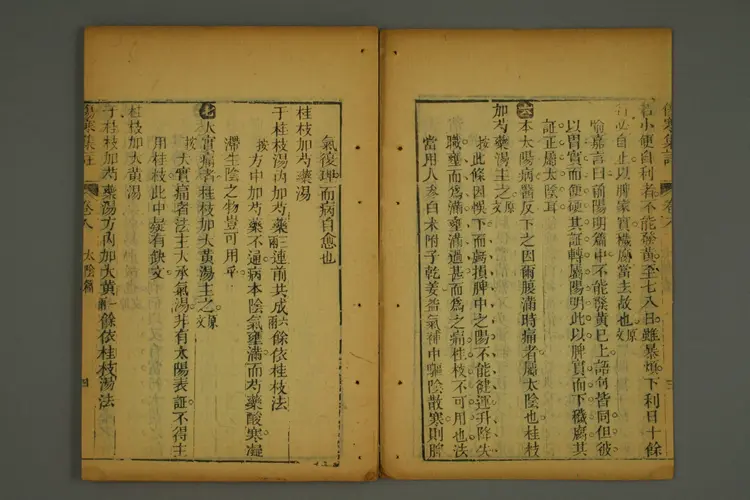 若小便自利者不能發黃至七八日雖暴煩下利日十餘
行必自止以脾家實穢腐當去故也原文
喻嘉言曰前陽明篇中不能發黃已上語句皆同但彼
以胃實而便硬其証轉屬陽明此以脾實而下穢腐其
証正屬太陰耳
六本太陽病醫反下之因爾腹滿時痛者屬太陰也桂枝
加芍藥湯主之原文
按此條因悞下而虧損脾中之陽不能健運升降失
職壅而爲滿壅滿過甚而爲之痛桂枝不可用也法
當用人參白朮附子乾姜益氣補中驅陰散寒則脾
氣復理而病自愈也
桂枝加芍藥湯
于桂枝湯內加芍藥三兩連前共成六兩餘依桂枝法
按方中加芍藥不通病本陰氣壅滿而芍藥酸寒凝
滯生陰之物豈可用乎
七大實痛者桂枝加大黃湯主之原文
按大實痛者法主大承氣湯并有太陽表証不得主
用桂枝此中疑有缺文
桂枝加大黃湯
于桂枝加芍藥湯方內加大黃一兩餘依桂枝湯法
傷寒集註 卷八 太陰篇 四